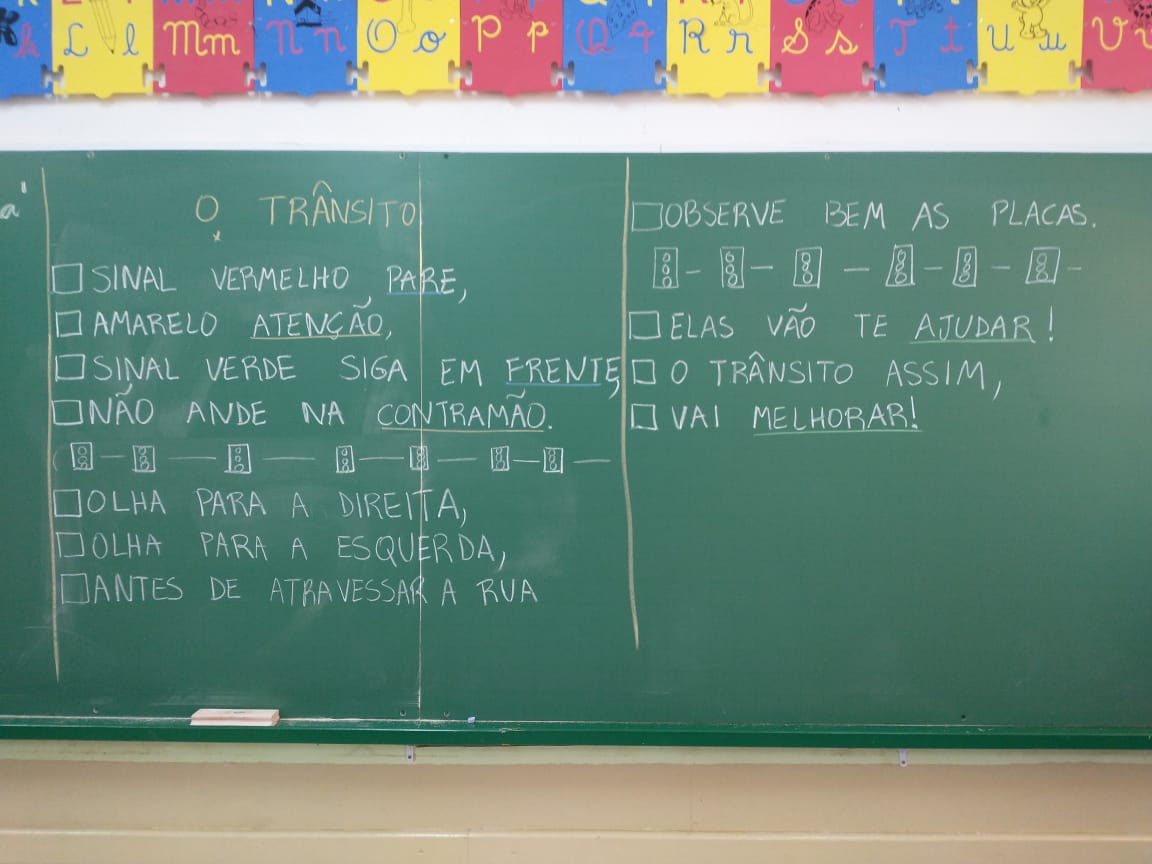 L l Mm N n O o P p Q q R r S s T t U u V v
a
O TRÂNSITO
SINAL VERMELHO, PARE,
AMARELO ATENÇÃO,
SINAL VERDE SIGA EM FRENTE,
NÃO ANDE NA CONTRAMÃO.
OLHA PARA A DIREITA,
OLHA PARA A ESQUERDA,
ANTES DE ATRAVESSAR A RUA
OBSERVE BEM AS PLACAS.
ELAS VÃO TE AJUDAR!
O TRÂNSITO ASSIM,
VAI MELHORAR!